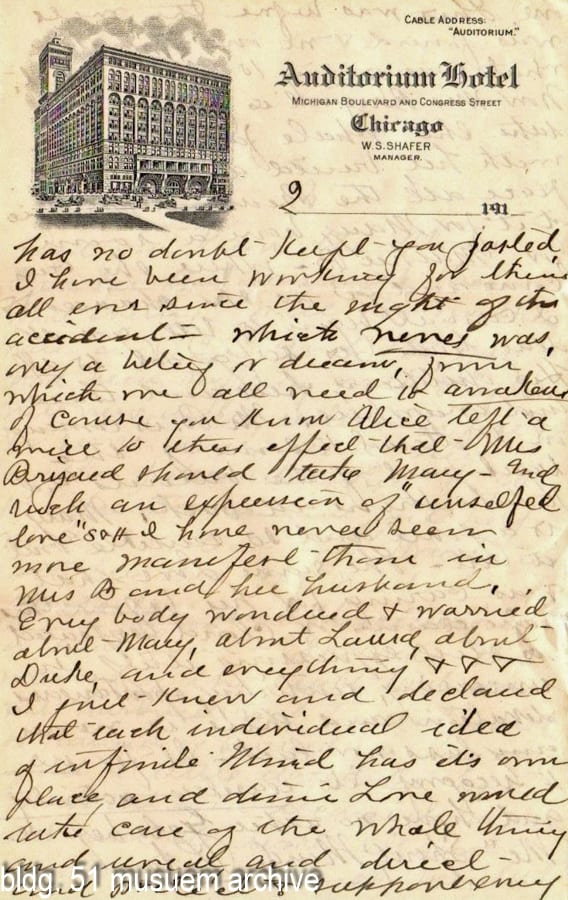 CABLE ADDRESS:
"AUDITORIUM."
Auditorium Hotel
MICHIGAN BOULEVARD AND CONGRESS STREET
Chicago
W.S. SHAFER
MANAGER.
2 191
has no doubt kept you posted
I have been working for them
all ever since the night of the
accident – which never was,
only a belief or dream, from
which we all need to awaken
of course you know Alice left a
to this effect that Mrs
Brizard should take Mary – And
such an expression of "unselfed
love" S & H I have never seen
more manifest than in
Mrs B and her husband,
Every body wondered & worried
about Mary, about Laura, about
Duke, and everything + + +
I just knew and declared
that each individual idea
of infinite Mind has it's own
place, and divine Love would
take care of the whole thing
and and direct
supporting
bldg. 51 musuem archive